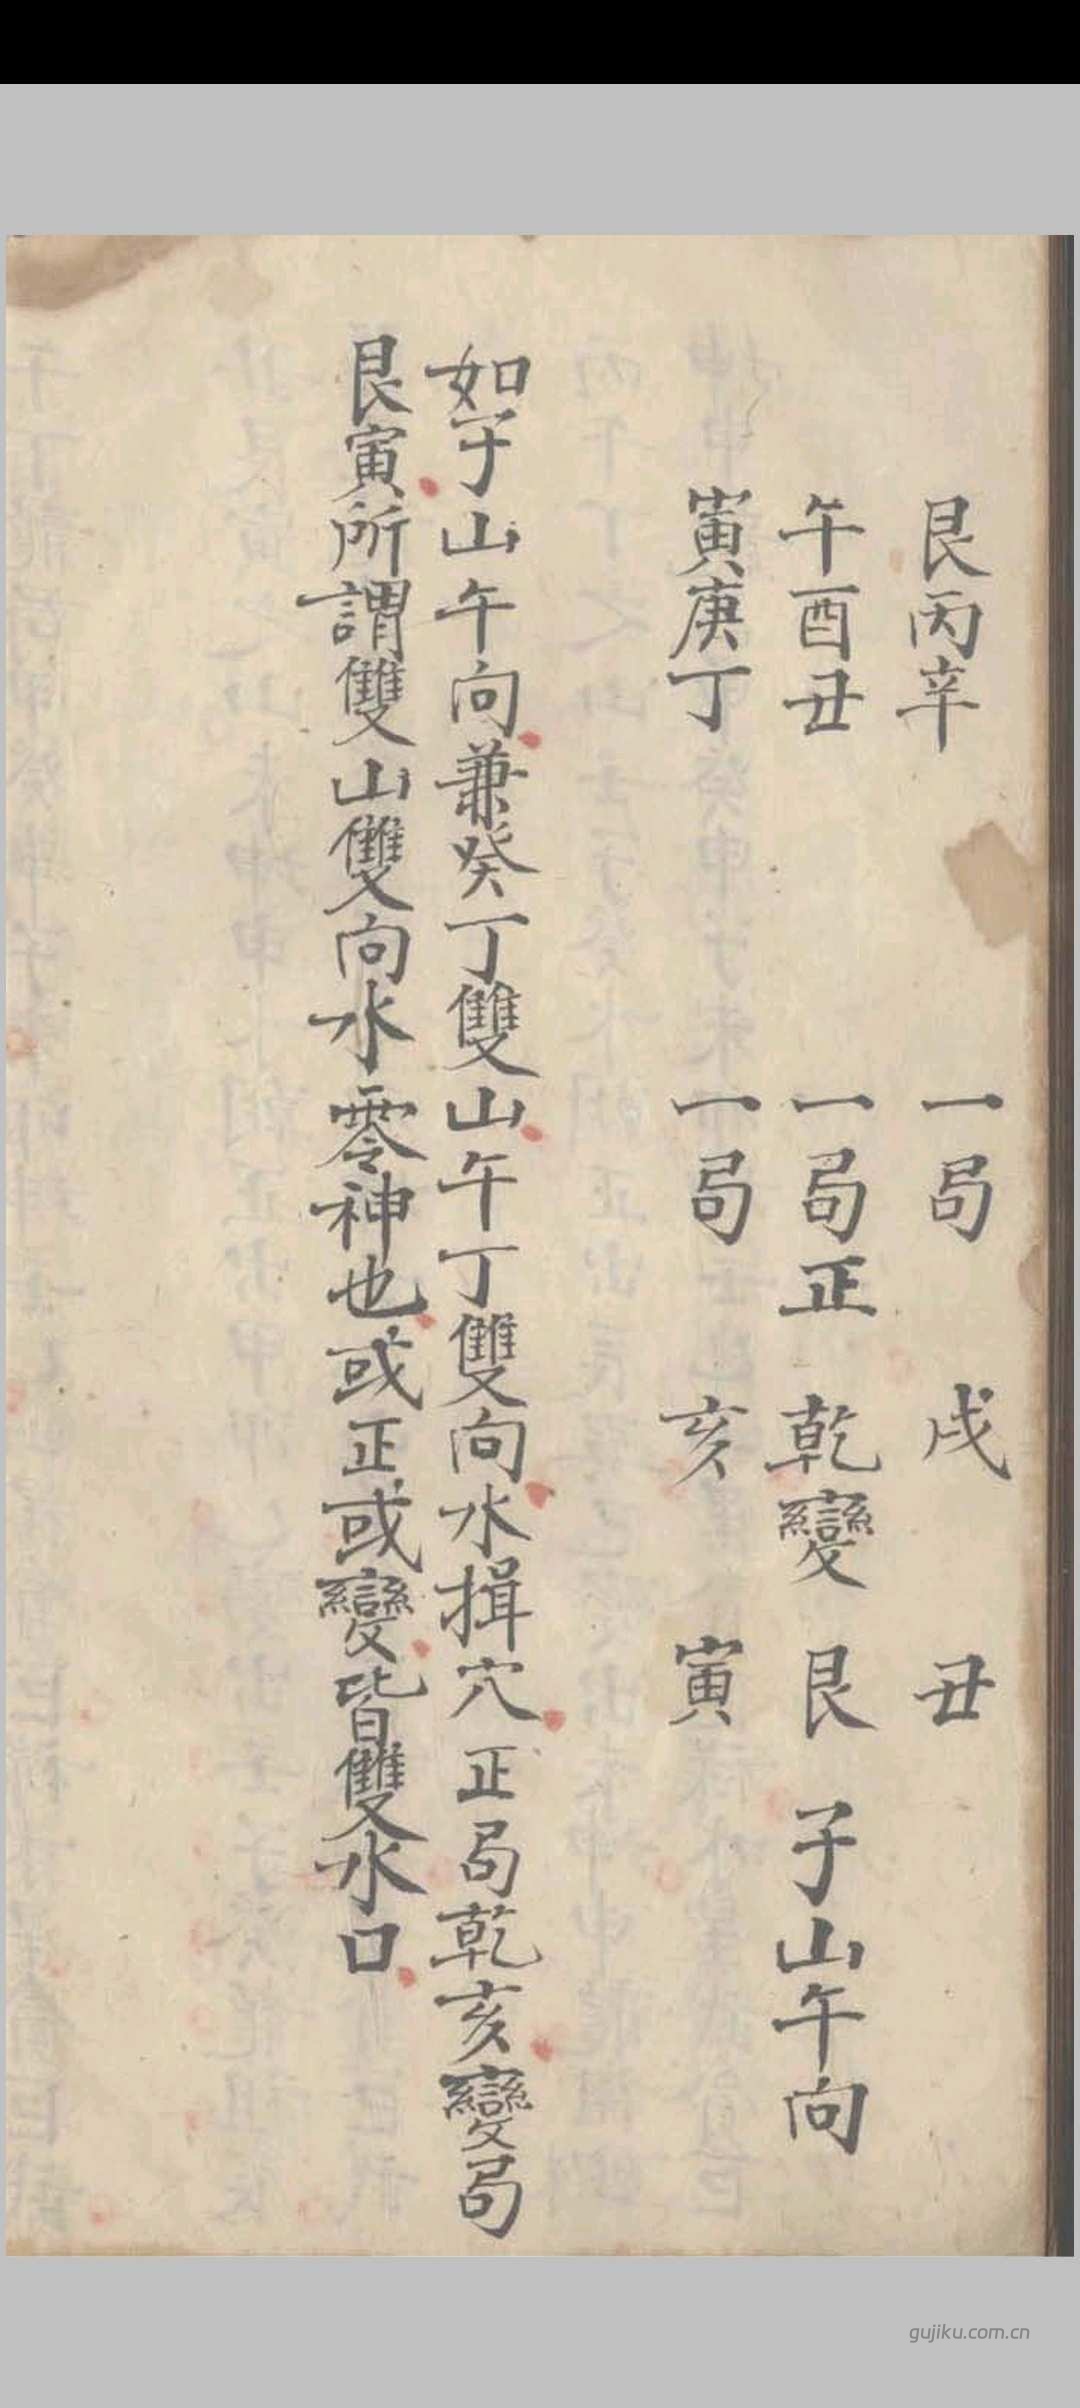 艮丙辛 一局 戌 丑
午酉丑 一局正 乾變 艮 子山午向
寅庚丁 一局 亥 寅
如子山午向兼癸丁雙山午丁雙向水揖穴正局乾亥變局
艮寅所謂雙山雙向水零神也或正或變皆雙水口
gujiku.com.cn